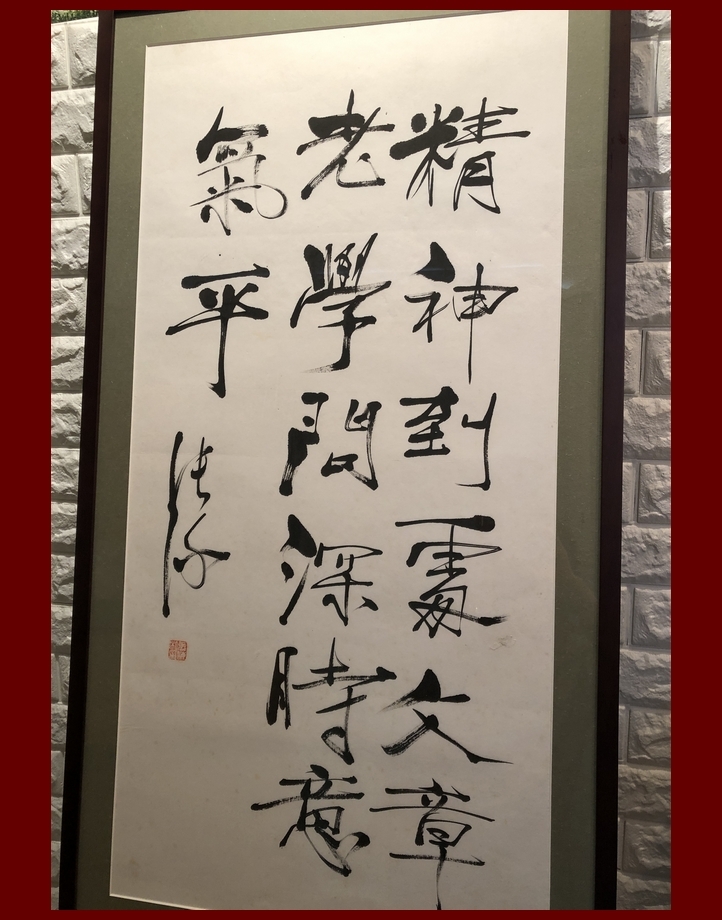 精神到處文章
老學問深時意
氣平